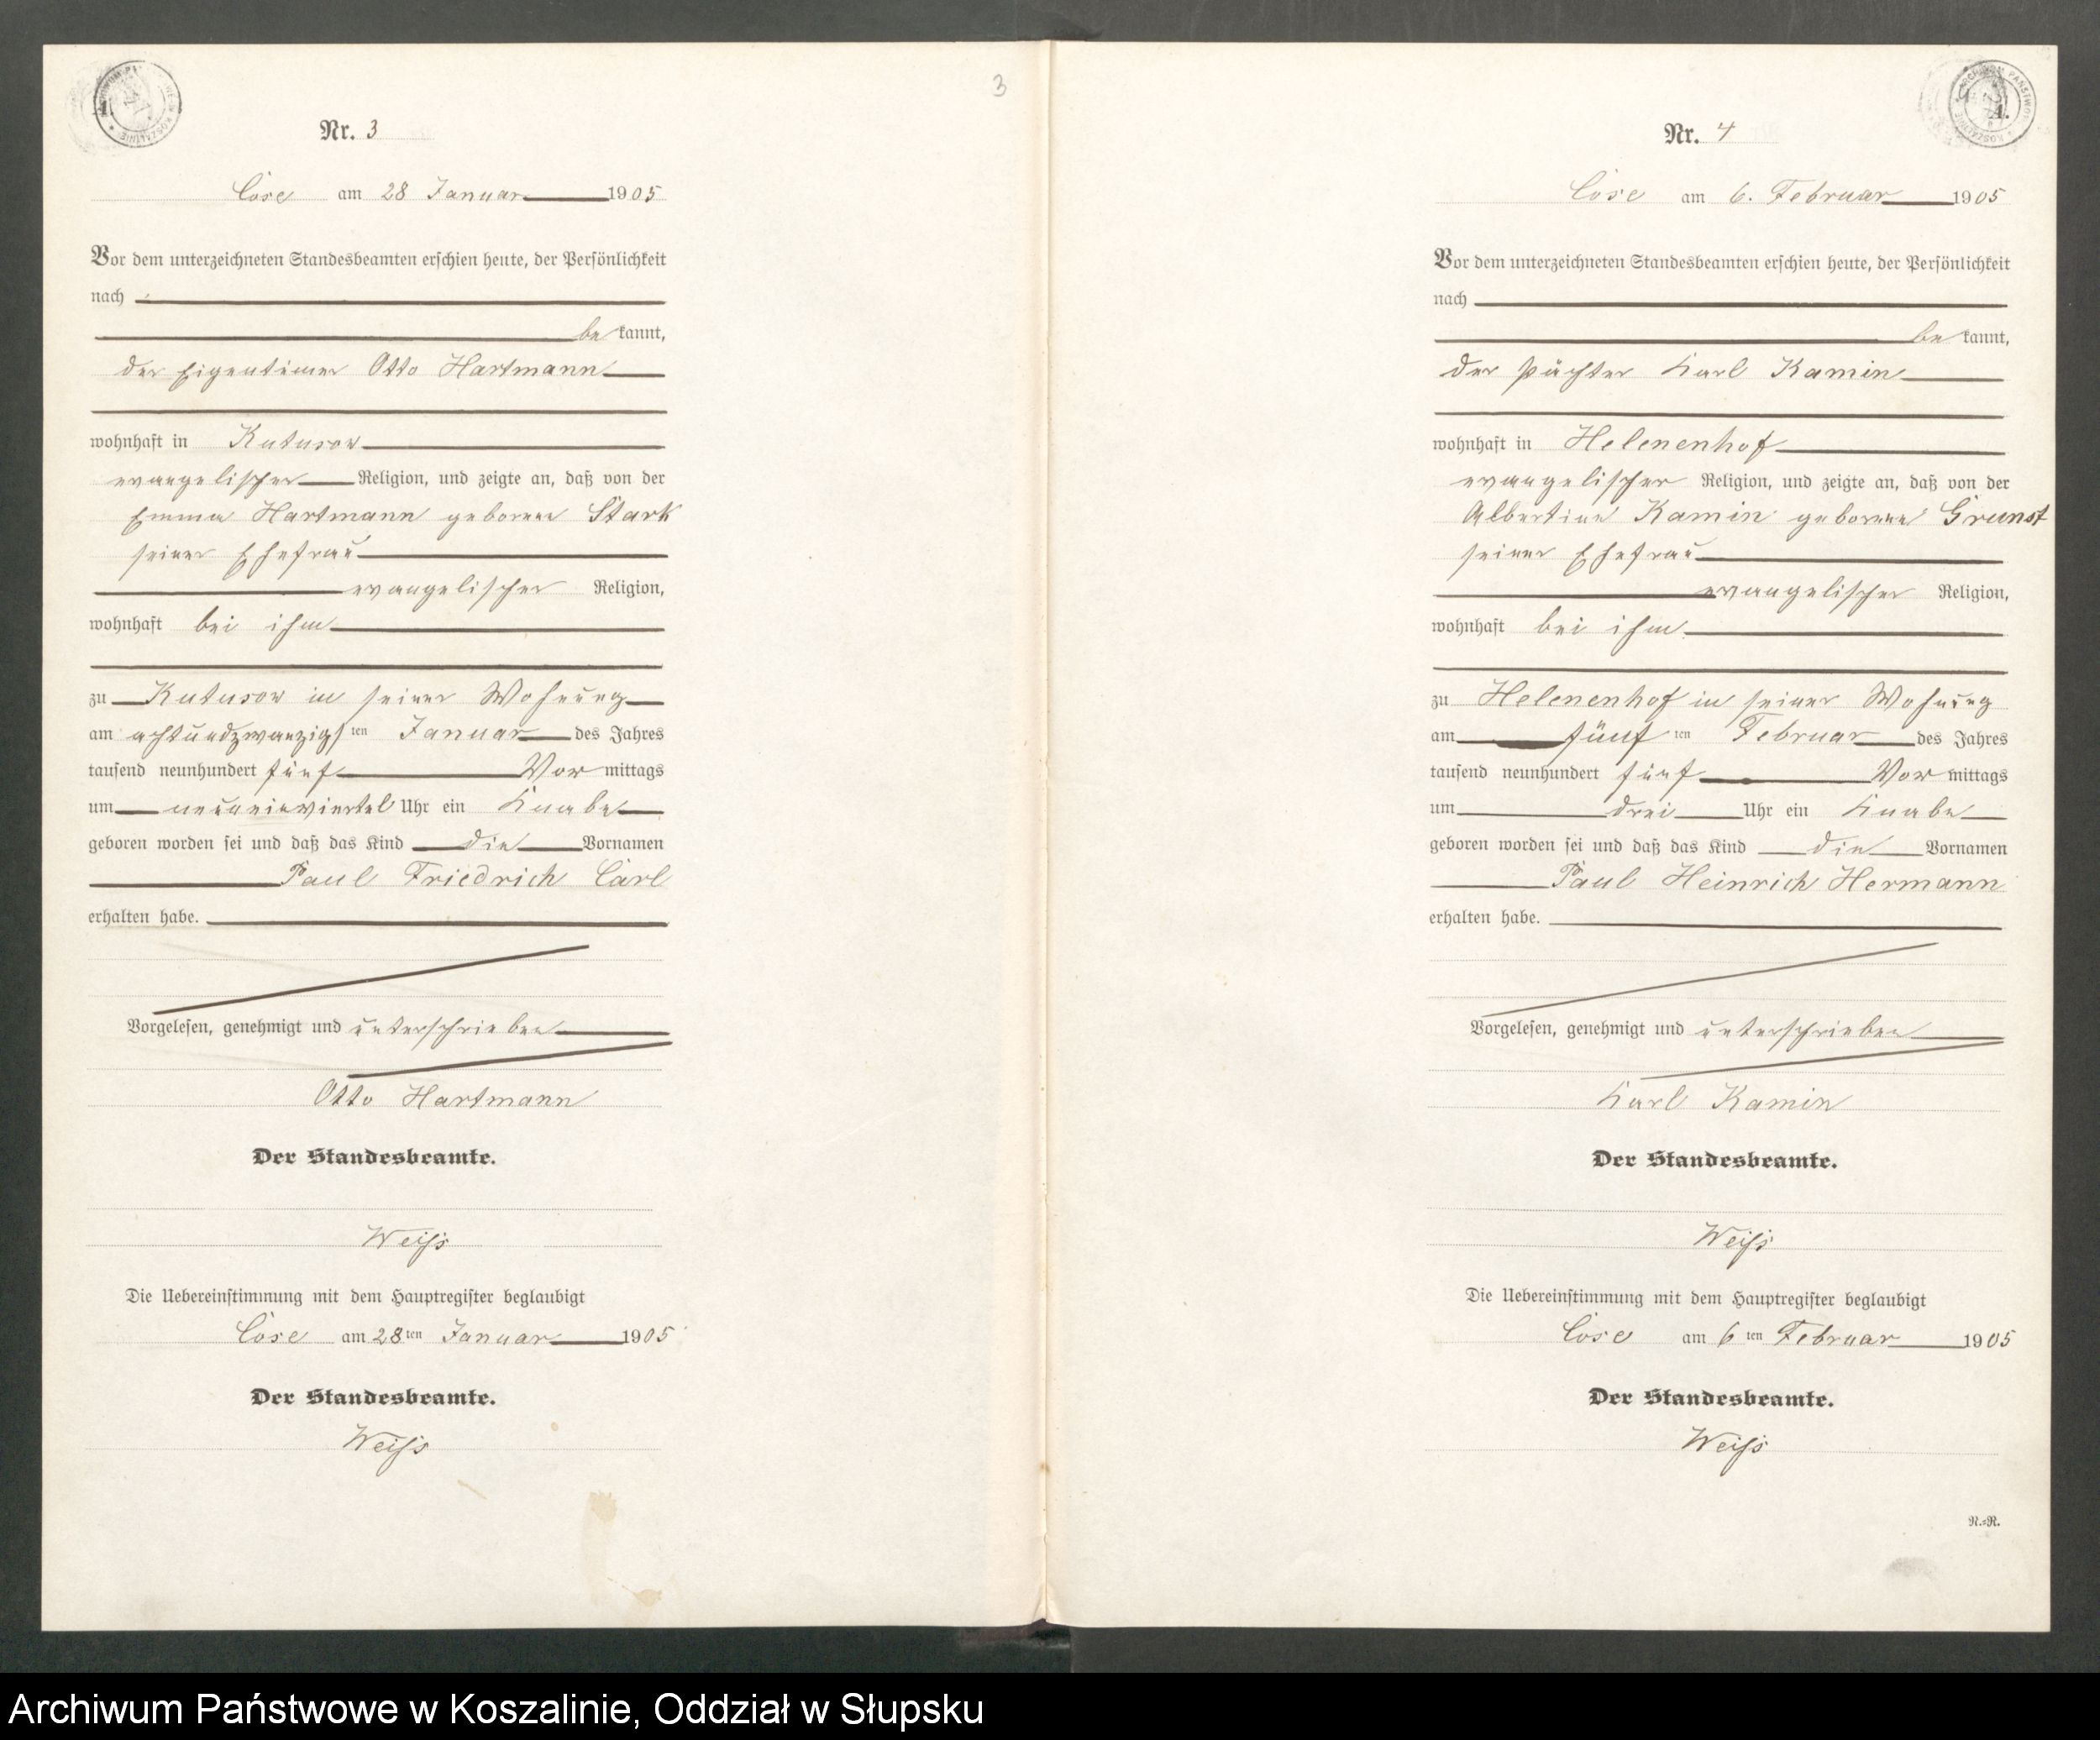 3
Nr. 3
Cose am 28 Januar 1905
Vor dem unterzeichneten Standesbeamten erschien heute, der Persönlichkeit
nach
be kannt,
der Eigentümer Otto Hartmann
wohnhaft in Kutusow
evangelischer Religion, und zeigte an, daß von der
Emma Hartmann geborene Stark
seiner Ehefrau
evangelischer Religion,
wohnhaft bei ihm
zu Kutusow in seiner Wohnung
am achtundzwanzigsten Januar des Jahres
tausend neunhundert fünf Vor mittags
um neuneinviertel Uhr ein Knabe
geboren worden sei und daß das Kind die Vornamen
Paul Friedrich Carl
erhalten habe.
Vorgelesen, genehmigt und unterschrieben
Otto Hartmann
Der Standesbeamte.
Weiß
Die Uebereinstimmung mit dem Hauptregister beglaubigt
Cose am 28ten Januar 1905
Der Standesbeamte.
Weiß
Nr. 4
Cose am 6. Februar 1905
Vor dem unterzeichneten Standesbeamten erschien heute, der Persönlichkeit
nach
be kannt,
der Pächter Karl Kamin
wohnhaft in Helenenhof
evangelischer Religion, und zeigte an, daß von der
Albertine Kamin geborene Grunst
seiner Ehefrau
evangelischer Religion,
wohnhaft bei ihm
zu Helenenhof in seiner Wohnung
am fünf ten Februar des Jahres
tausend neunhundert fünf Vor mittags
um drei Uhr ein Knabe
geboren worden sei und daß das Kind die Vornamen
Paul Heinrich Hermann
erhalten habe.
Vorgelesen, genehmigt und unterschrieben
Karl Kamin
Der Standesbeamte.
Weiß
Die Uebereinstimmung mit dem Hauptregister beglaubigt
Cose am 6 ten Februar 1905
Der Standesbeamte.
Weiß
N.=R.
Archiwum Państwowe w Koszalinie, Oddział w Słupsku